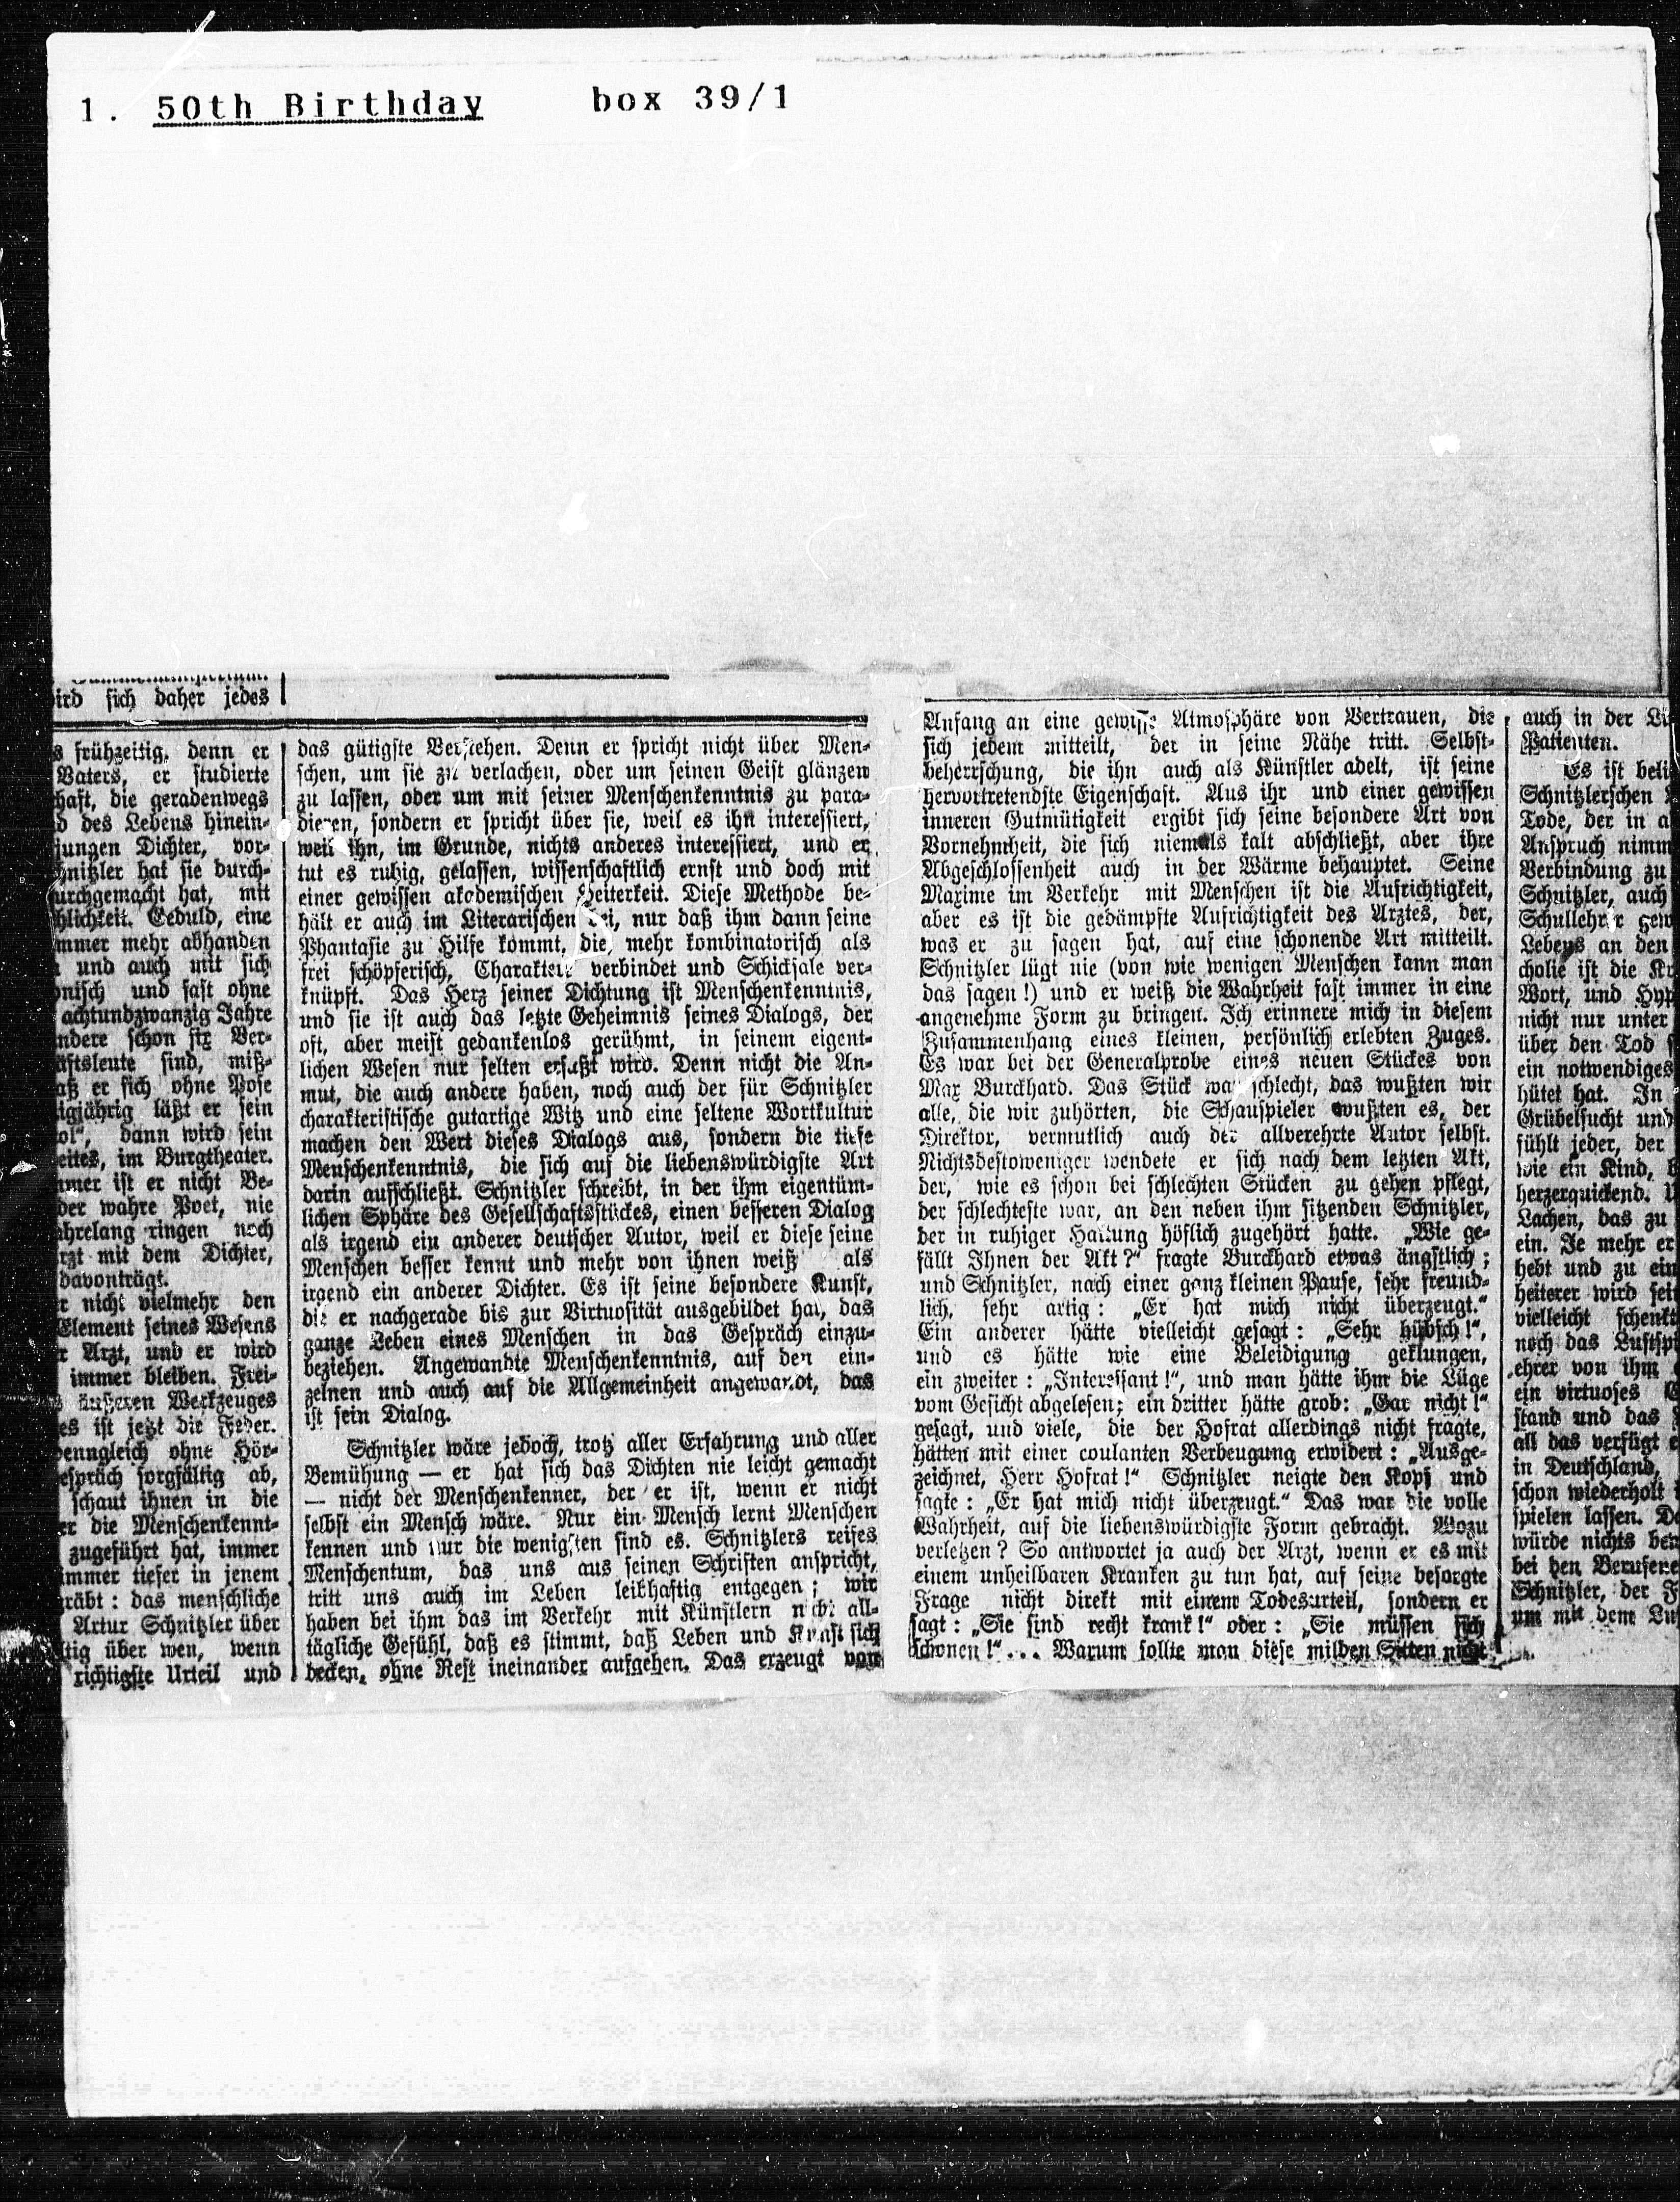 1. 50th Birthday box 39/1
ird sich daher jedes
s frühzeitig, denn er
Vaters, er studierte
haft, die geradenwegs
d des Lebens hinein-
jungen Dichter, vor-
nitzler hat sie durch-
urchgemacht hat, mit
hlichkeit. Geduld, eine
mmer mehr abhanden
und auch mit sich
onisch und fast ohne
achtundzwanzig Jahre
ndere schon fix Ver-
äftsleute sind, miß-
aß er sich ohne Pose
igjährig läßt er sein
ol", dann wird sein
eites, im Burgtheater.
mmer ist er nicht Be-
der wahre Poet, nie
ahrelang ringen noch
rzt mit dem Dichter,
davonträgt.
r nicht vielmehr den
Element seines Wesens
r Arzt, und er wird
immer bleiben. Frei-
s äußeren Werkzeuges
es ist jetzt die Feder.
enngleich ohne Hör-
espräch sorgfältig ab,
schaut ihnen in die
er die Menschenkennt-
zugeführt hat, immer
immer tiefer in jenem
räbt: das menschliche
Artur Schnitzler über
tig über wen, wenn
richtigste Urteil und
das gütigste Verstehen. Denn er spricht nicht über Men-
schen, um sie zu verlachen, oder um seinen Geist glänzen
zu lassen, oder um mit seiner Menschenkenntnis zu para-
dieren, sondern er spricht über sie, weil es ihn interessiert,
weil ihn, im Grunde, nichts anderes interessiert, und er
tut es ruhig, gelassen, wissenschaftlich ernst und doch mit
einer gewissen akademischen Heiterkeit. Diese Methode be-
hält er auch im Literarischen bei, nur daß ihm dann seine
Phantasie zu Hilfe kommt, die, mehr kombinatorisch als
frei schöpferisch, Charaktere verbindet und Schicksale ver-
knüpft. Das Herz seiner Dichtung ist Menschenkenntnis,
und sie ist auch das letzte Geheimnis seines Dialogs, der
oft, aber meist gedankenlos gerühmt, in seinem eigent-
lichen Wesen nur selten erfaßt wird. Denn nicht die An-
mut, die auch andere haben, noch auch der für Schnitzler
charakteristische gutartige Witz und eine seltene Wortkultur
machen den Wert dieses Dialogs aus, sondern die tiefe
Menschenkenntnis, die sich auf die liebenswürdigste Art
darin aufschließt. Schnitzler schreibt, in der ihm eigentüm-
lichen Sphäre des Gesellschaftsstückes, einen besseren Dialog
als irgend ein anderer deutscher Autor, weil er diese seine
Menschen besser kennt und mehr von ihnen weiß als
irgend ein anderer Dichter. Es ist seine besondere Kunst,
die er nachgerade bis zur Virtuosität ausgebildet hat, das
ganze Leben eines Menschen in das Gespräch einzu-
beziehen. Angewandte Menschenkenntnis, auf den ein-
zelnen und auch auf die Allgemeinheit angewandt, das
ist sein Dialog.
Schnitzler wäre jedoch, trotz aller Erfahrung und aller
Bemühung — er hat sich das Dichten nie leicht gemacht
— nicht der Menschenkenner, der er ist, wenn er nicht
selbst ein Mensch wäre. Nur ein Mensch lernt Menschen
kennen und nur die wenigsten sind es. Schnitzlers reifes
Menschentum, das uns aus seinen Schriften anspricht,
tritt uns auch im Leben leibhaftig entgegen; wir
haben bei ihm das im Verkehr mit Künstlern nicht all-
tägliche Gefühl, daß es stimmt, daß Leben und Kunst sich
decken, ohne Rest ineinander aufgehen. Das erzeugt von
Anfang an eine gewisse Atmosphäre von Vertrauen, die
sich jedem mitteilt, der in seine Nähe tritt. Selbst-
beherrschung, die ihn auch als Künstler adelt, ist seine
hervortretendste Eigenschaft. Aus ihr und einer gewissen
inneren Gutmütigkeit ergibt sich seine besondere Art von
Vornehmheit, die sich niemals kalt abschließt, aber ihre
Abgeschlossenheit auch in der Wärme behauptet. Seine
Maxime im Verkehr mit Menschen ist die Aufrichtigkeit,
aber es ist die gedämpfte Aufrichtigkeit des Arztes, der,
was er zu sagen hat, auf eine schonende Art mitteilt.
Schnitzler lügt nie (von wie wenigen Menschen kann man
das sagen!) und er weiß die Wahrheit fast immer in eine
angenehme Form zu bringen. Ich erinnere mich in diesem
Zusammenhang eines kleinen, persönlich erlebten Zuges.
Es war bei der Generalprobe eines neuen Stückes von
Max Burckhard. Das Stück war schlecht, das wußten wir
alle, die wir zuhörten, die Schauspieler wußten es, der
Direktor, vermutlich auch der allverehrte Autor selbst.
Nichtsdestoweniger wendete er sich nach dem letzten Akt,
der, wie es schon bei schlechten Stücken zu gehen pflegt,
der schlechteste war, an den neben ihm sitzenden Schnitzler,
der in ruhiger Haltung höflich zugehört hatte. „Wie ge-
fällt Ihnen der Akt?" fragte Burckhard etwas ängstlich;
und Schnitzler, nach einer ganz kleinen Pause, sehr freund-
lich, sehr artig: „Er hat mich nicht überzeugt."
Ein anderer hätte vielleicht gesagt: „Sehr hübsch!",
und es hätte wie eine Beleidigung geklungen,
ein zweiter: „Interessant!", und man hätte ihm die Lüge
vom Gesicht abgelesen; ein dritter hätte grob: „Gar nicht!"
gesagt, und viele, die der Hofrat allerdings nicht fragte,
hätten mit einer coulanten Verbeugung erwidert: „Ausge-
zeichnet, Herr Hofrat!" Schnitzler neigte den Kopf und
sagte: „Er hat mich nicht überzeugt." Das war die volle
Wahrheit, auf die liebenswürdigste Form gebracht. Wozu
verletzen? So antwortet ja auch der Arzt, wenn er es mit
einem unheilbaren Kranken zu tun hat, auf seine besorgte
Frage nicht direkt mit einem Todesurteil, sondern er
sagt: „Sie sind recht krank!" oder: „Sie müssen sich
schonen!"... Warum sollte man diese milden Sitten nicht
auch in der Li
Patienten.
Es ist beli
Schnitzlerschen
Tode, der in a
Anspruch nimm
Verbindung zu
Schnitzler, auch
Schullehrer gew
Lebens an den
cholie ist die Kr
Wort, und Hyp
nicht nur unter
über den Tod s
ein notwendiges
hütet hat. In
Grübelsucht und
fühlt jeder, der
wie ein Kind,
herzerquickend.
Lachen, das zu
ein. Je mehr er
hebt und zu ein
heiterer wird sei
vielleicht schenkt
noch das Lustsp
ehrer von ihm
ein virtuoses
stand und das
all das verfügt e
in Deutschland,
schon wiederholt
spielen lassen. De
würde nichts be
bei den Berufene
Schnitzler, der F
um mit dem Lu